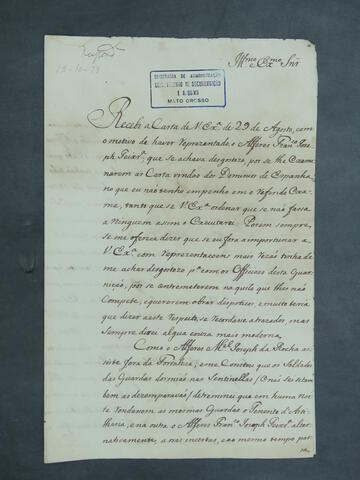 12-10-73
Ill.mo e Ex.mo Snr.
SECRETARIA DE ADMINISTRAÇÃO
MATO GROSSO
Recebi a Carta de V. Ex.ª de 29 de Agosto, com
o motivo de haver reprezentado o Alferes Fran.co Jo-
zeph Teixr.ª, que se achava desgostozo, por se lhe Exami-
narem as Carta vindas dos Dominios de Espanha,
no que eu não tenho empenho em o referido Exa-
me, tanto que se V. Ex.ª ordenar que se não fassa
a Ninguem assim o Executarei. Porem sempre
se me oferece dizer que se eu fora a importunar a
V. Ex.ª com reprezentaçoens mais razão tinha de
me achar desgostozo p.r com os Officiaes desta Guar-
nição, por se entremeterem naquilo que lhes não
Compete, e quererem obrar despotico, e muito teria
que dizer neste respeito se recordasse atrazados, mas
Sempre direi algua couza mais moderna.
Como o Alferes M.el Joseph da Rocha as-
siste fora da Fortaleza, e me Constou que os Soldados
das Guardas dormião nas Sentinellas
bem as dezemparavão) determinei que em huma Noi-
te rondassem as mesmas Guardas o Tenente d'Arti-
lharia, e na outra o Alferes Fran.co Joseph Teixr.ª alter-
nativamente, a oras incertas, e ao mesmo tempo pas-